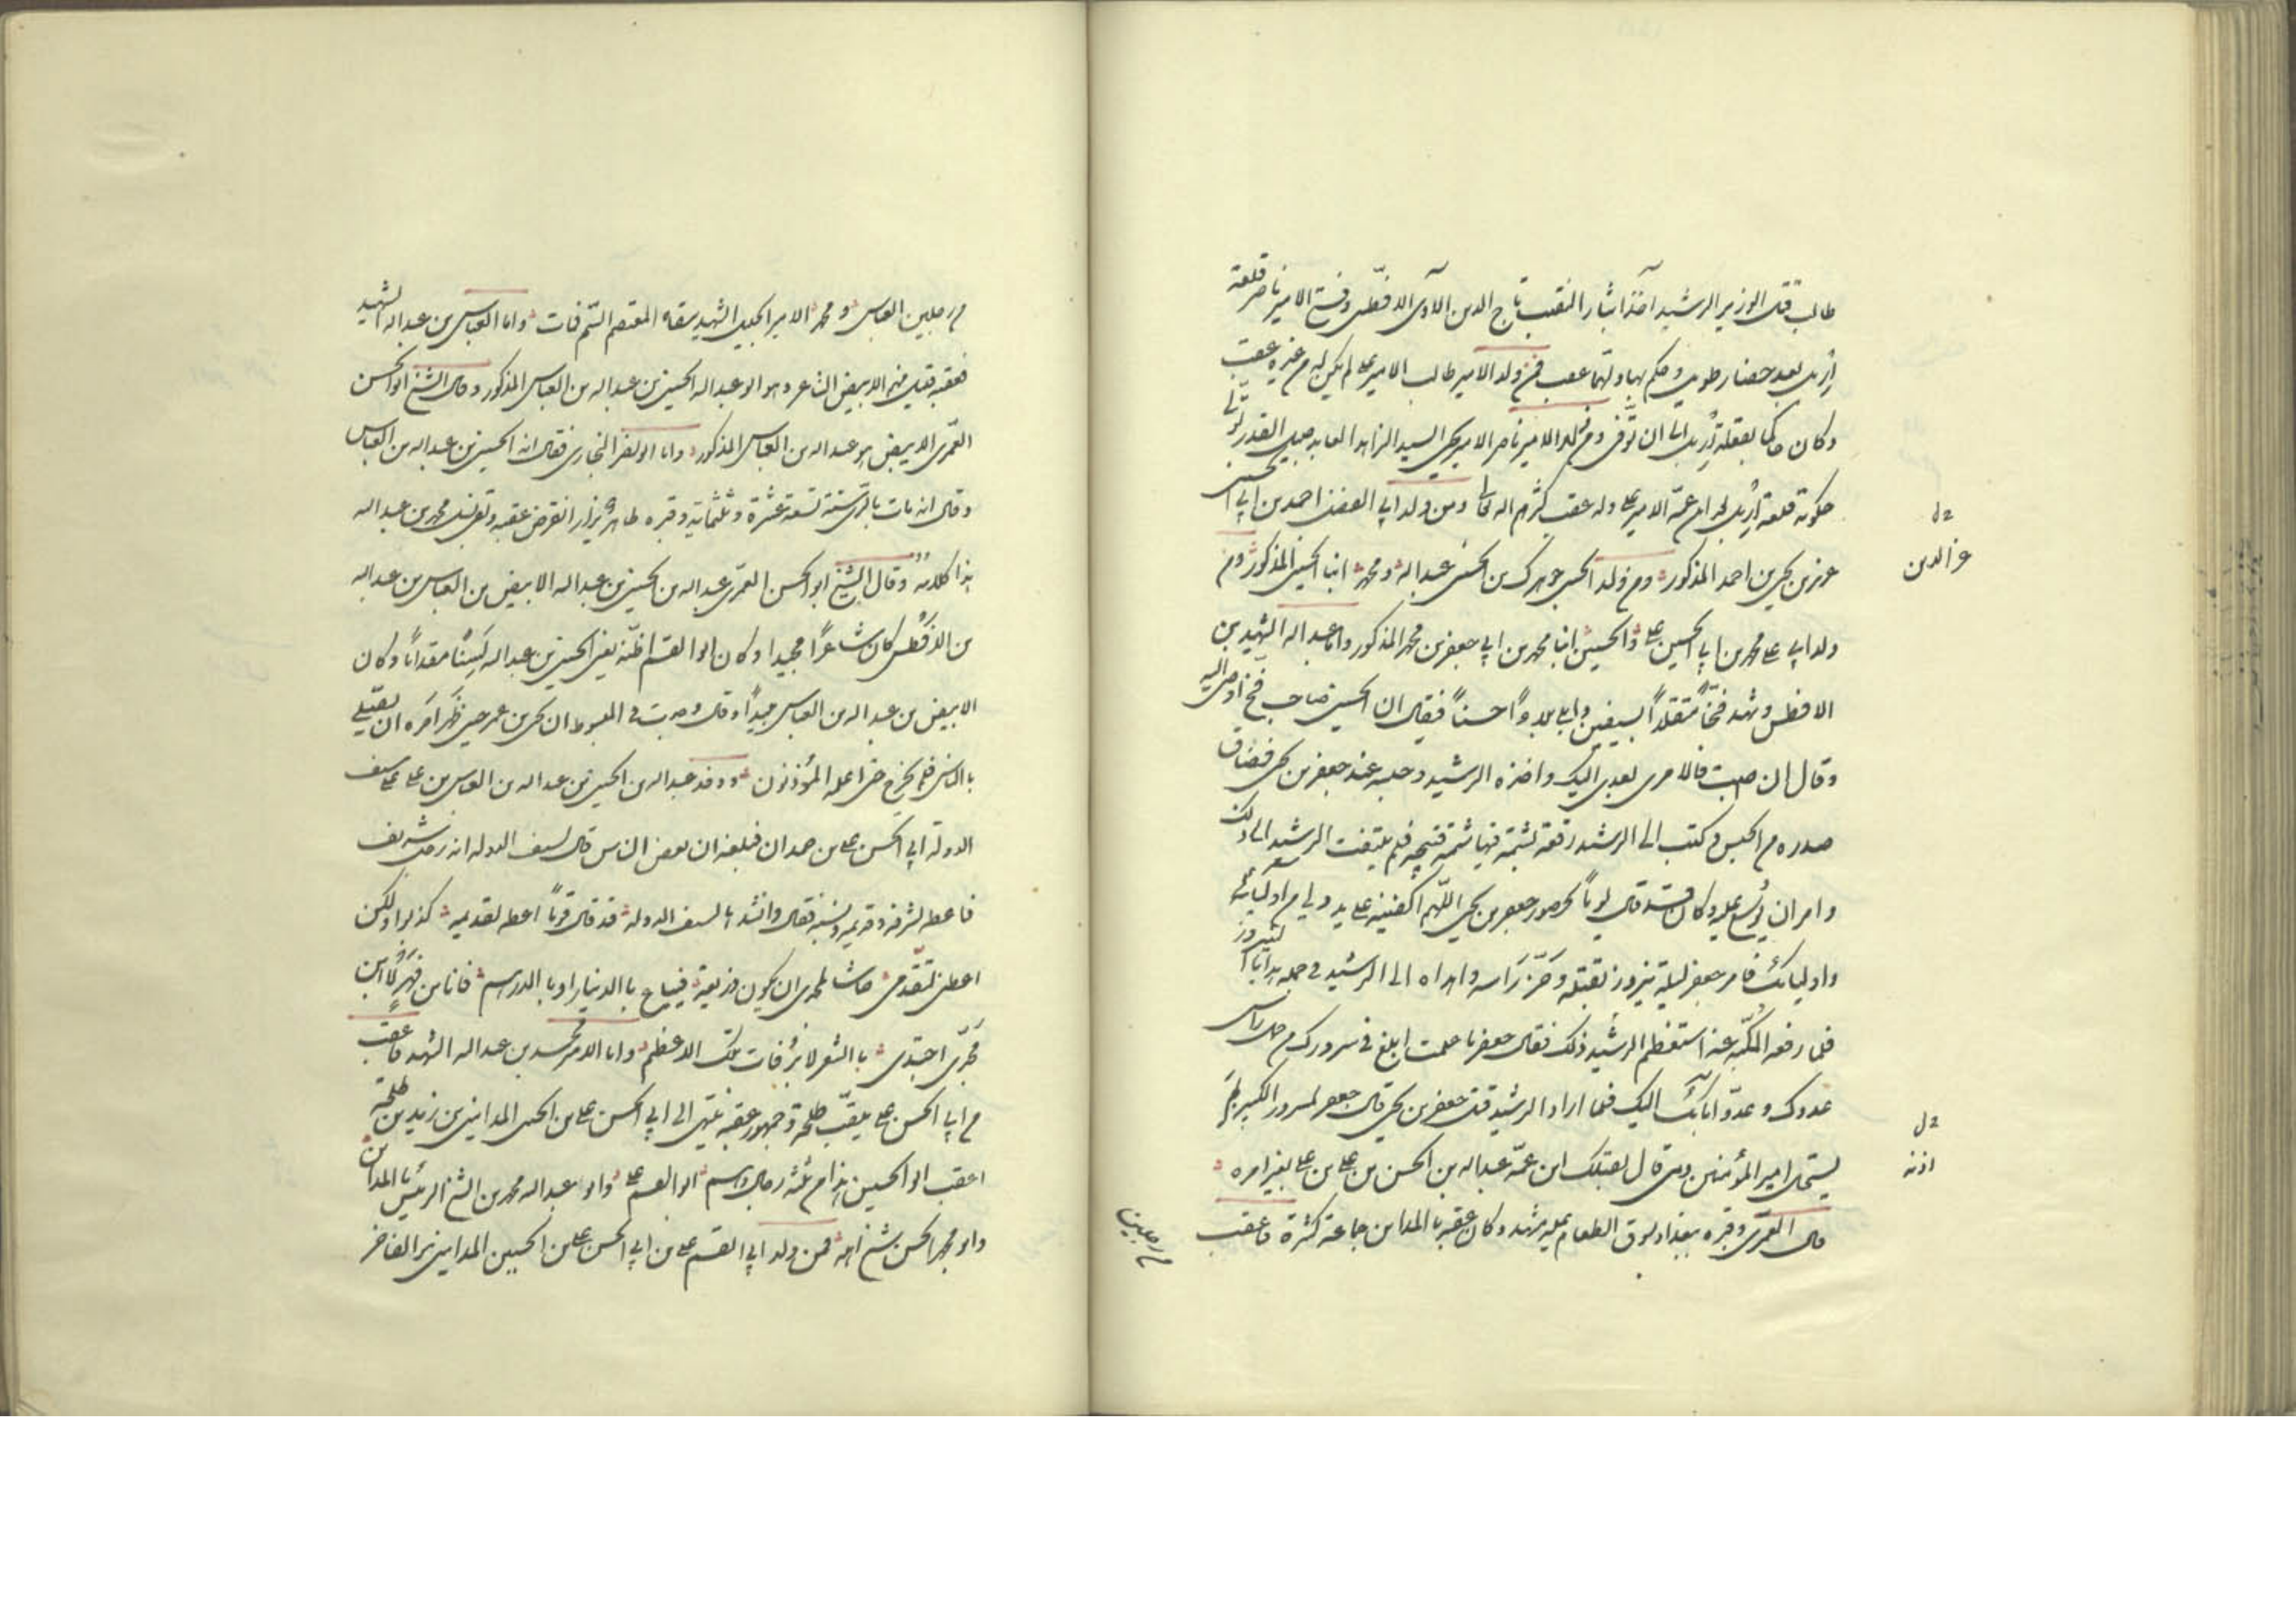 طالب قتل الوزير الرشيد اخذا بثار النقيب تاج الدين الآوى الافطسى وفتح الامير ناصر قلعة
اربل بعد حصار طويل وحكم بها ولهما عقب فمن ولد الامير طالب الامير على لم يكن له من غيره عقب
وكان حاكما بقلعة اربل الى ان توفى ومن ولد الامير ناصر الامير يحيى السيد الزاهد العابد جليل القدر تولى
حكومة قلعة اربل بعد ابن عمه الامير على وله عقب كثرهم الله تعالى ومن ولد ابى الفضل احمد بن ابى الحسن
عز بن يحيى بن احمد المذكور ومن ولد الحسن جوهرك بن الحسن عبد الله ومحمد ابنا الحسن المذكور ومن
ولد ابى على محمد بن ابى الحسين على والحسين ابنا محمد بن ابى جعفر بن محمد المذكور واما عبد الله الشهيد بن
الافطس وشهد فخا متقلدا بسيفين وابلى بلاء حسنا فيقال ان الحسين صاحب فخ اوصى اليه
وقال ان اصبت فالامر بعدى اليك واخذه الرشيد وحبسه عند جعفر بن يحيى فضاق
صدره من الحبس وكتب الى الرشيد رقعة يشتمه فيها شتما قبيحا فلم يلتفت الرشيد الى ذلك
وامر ان يوسع عليه وكان قد قال يوما بحضور جعفر بن يحيى اللهم اكفنيه على يد ولى من اوليائى
واوليائك فامر جعفر ليلة نيروز بقتله وحز راسه واهداه الى الرشيد فى جملة هدايا النيروز
فلما رفعت المكبة عنه استعظم الرشيد ذلك فقال جعفر ما علمت ابلغ فى سرورك من حمل راس
عدوك وعدو آبائك اليك فلما اراد الرشيد قتل جعفر بن يحيى قال جعفر لمسرور الكبير بم
يستحل امير المؤمنين دمى قال بقتلك ابن عمه عبد الله بن الحسن بن على بن على بغير امره
قال العمرى وقبره ببغداد بسوق الطعام عليه مشهد وكان عقبه بالمدائن جماعة كثيرة فاعقب
من رجلين
خ ل
عز الدين
خ ل
اذنه
من رجلين العباس ومحمد الامير الجليل الشهيد سقاه المعتصم السم فمات واما العباس بن عبد الله الشهيد
فعقبه قليل منهم الابيض الشاعر وهو ابو عبد الله الحسين بن عبد الله بن العباس المذكور وقال الشيخ ابو الحسن
العمرى الابيض هو عبد الله بن العباس المذكور واما ابو نصر البخارى فقال انه الحسين بن عبد الله بن العباس
وقال انه مات بالرى سنة تسع عشرة وثلثمائة وقبره ظاهر يزار انقرض عقبه وبقى نسل محمد بن عبد الله
هذا كلامه وقال الشيخ ابو الحسن العمرى عبد الله بن الحسين بن عبد الله الابيض بن العباس بن عبد الله
بن الافطس كان شاعرا مجيدا وكان ابو القسم اظنه يعنى الحسين بن عبد الله لسنا مقداما وكان
الابيض بن عبد الله بن العباس مجيدا وقال وجدت فى المبسوط ان يحيى بن عمر حين ظهر امره ان يصلى
بالناس فلم يخرج حتى اعلمه المؤذنون ووفد عبد الله بن الحسين بن عبد الله بن العباس بن على على سيف
الدولة ابى الحسن على بن حمدان فبلغه ان بعض الناس قال لسيف الدولة انه رجل شريف
فاعطه لشرفه وقديمه ونسبه فقال وانشد يا لسيف الدولة قد قال قوما اعطه لقديمه كذبوا ولكن
اعطنى لتقدمى حاشا لمجدى ان يكون ذريعة فيباع بالدينار او بالدرهم فانا ابن فهمى لا ابن
مجدى اجتدى بالشعر لا برفات تلك الاعظم واما الامير محمد بن عبد الله الشهيد فاعقب
من ابى الحسن على يلقب طلحة وجمهور عقبه ينتهى الى ابى الحسن على بن الحسن المداينى بن زيد بن طلحة
اعقب ابو الحسين هذا من ثلثة رجال وهم ابو القسم على وابو عبد الله محمد بن الشيخ الرئيس بالمدائن
وابو محمد الحسن شيخ اهله فمن ولد ابى القسم على بن ابى الحسن على بن الحسين المداينى فخر الفاخر